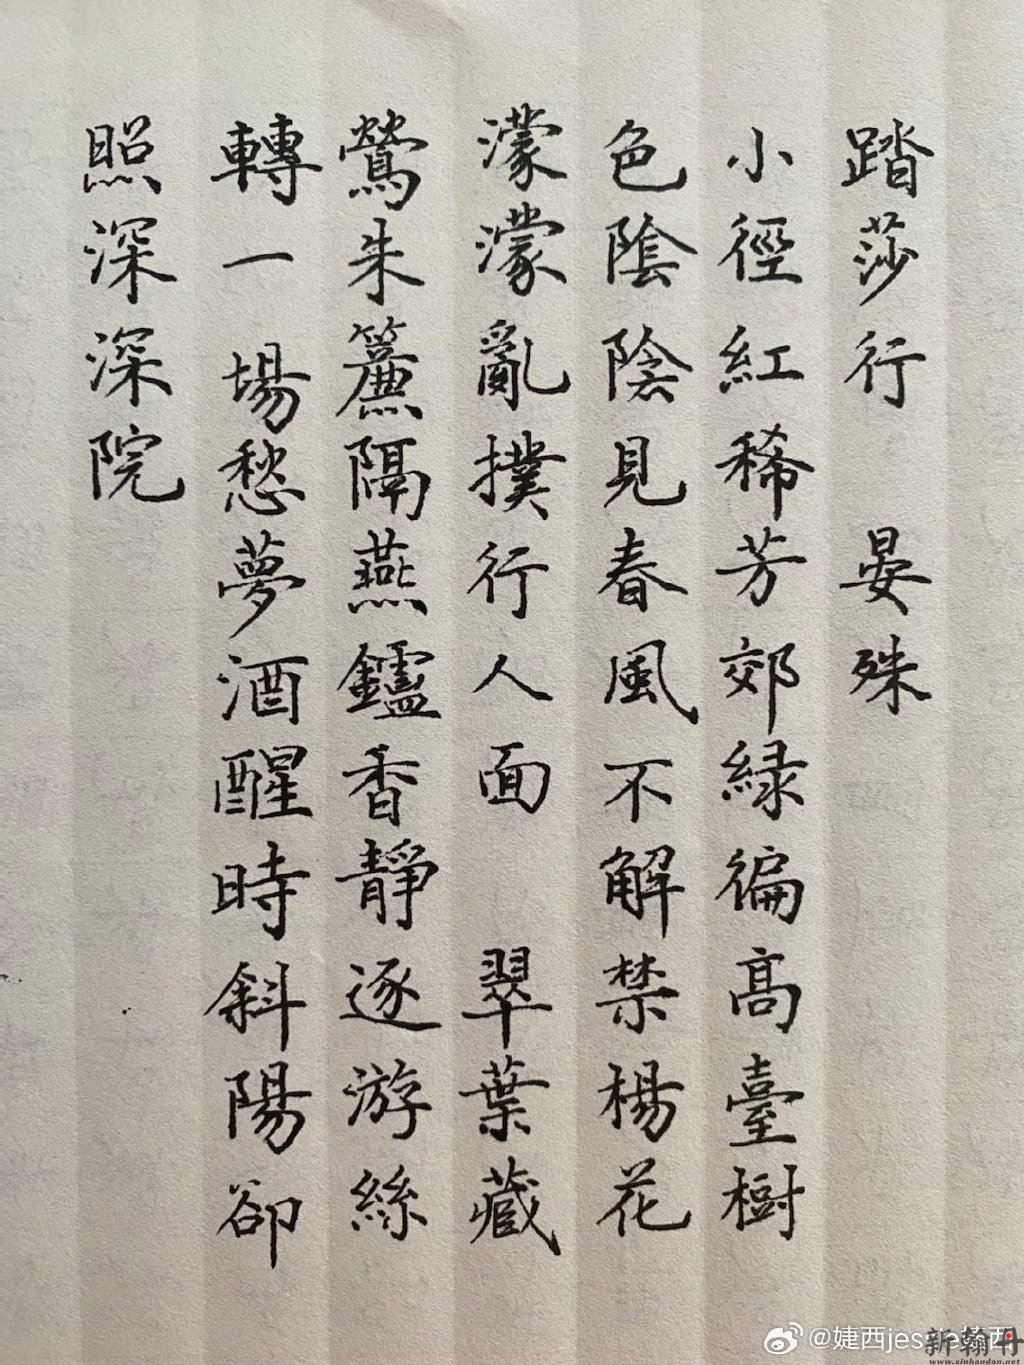 踏莎行　晏殊
小徑紅稀芳郊緑徧高臺樹
色陰陰見春風不解禁楊花
濛濛亂撲行人面　翠葉藏
鶯朱簾隔燕鑪香靜逐游絲
轉一場愁夢酒醒時斜陽卻
照深深院
@婕西jes
新翰丹
www.xinhandan.net